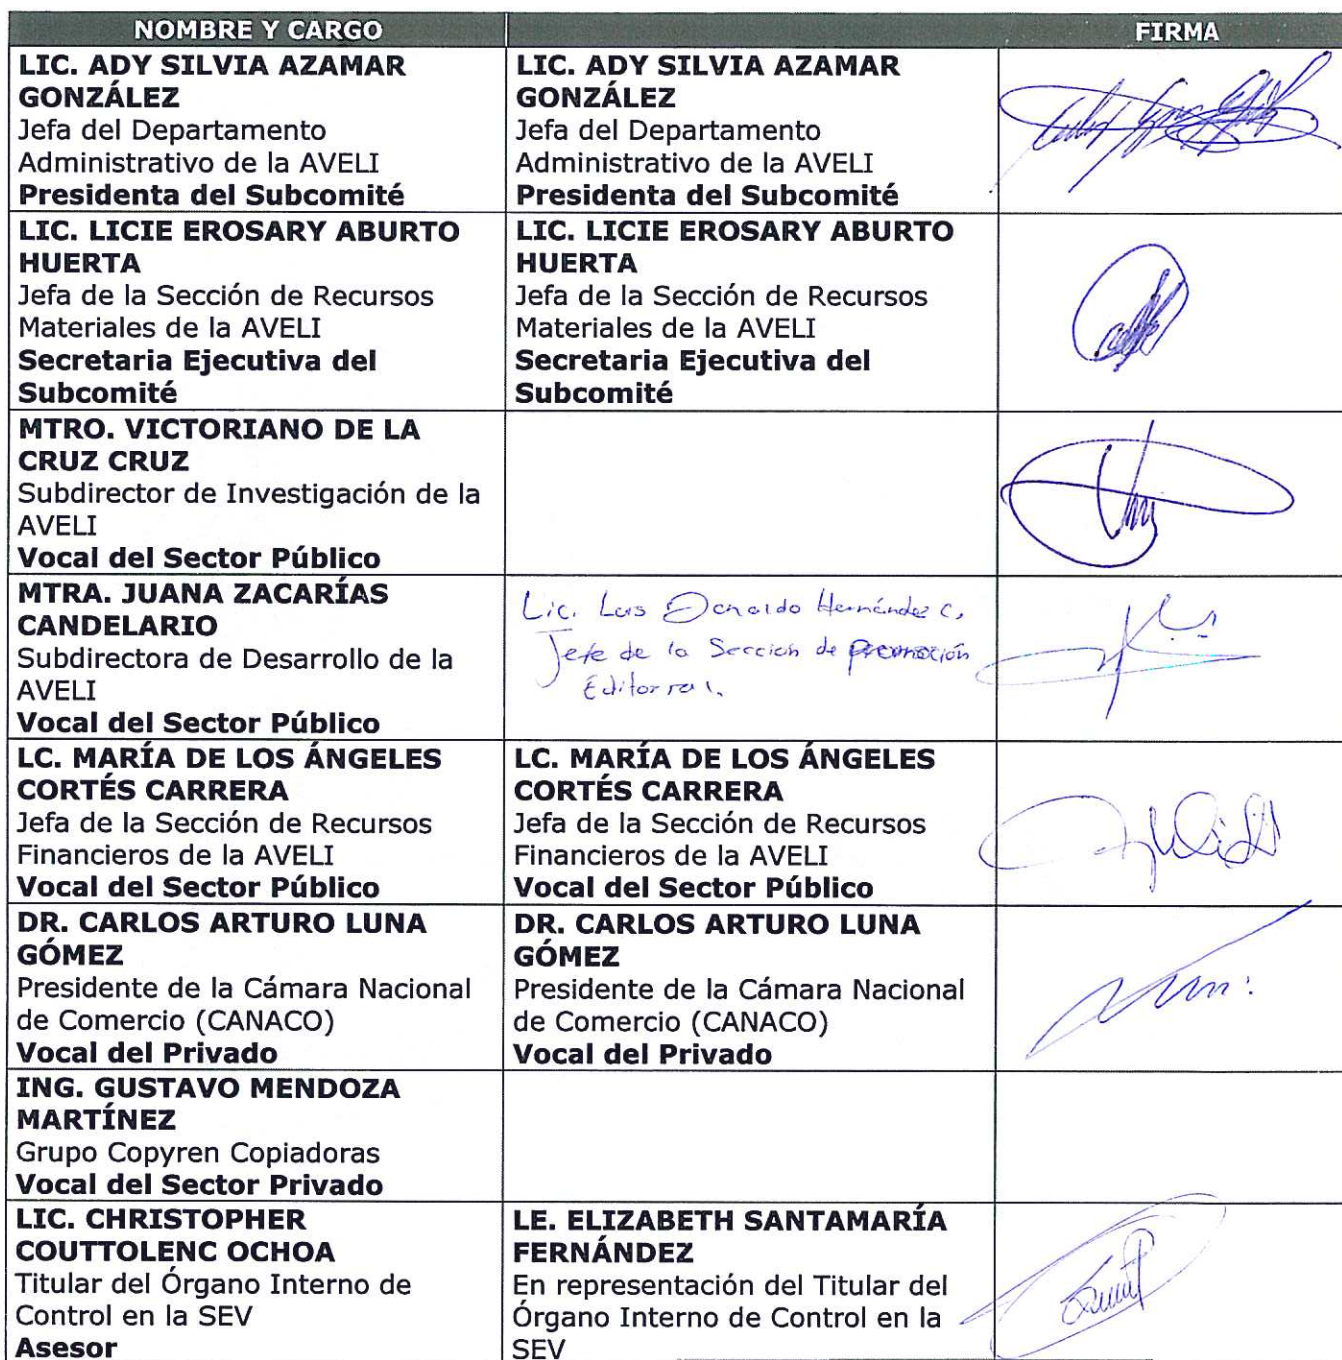 NOMBRE Y CARGO
FIRMA
LIC. ADY SILVIA AZAMAR
GONZÁLEZ
Jefa del Departamento
Administrativo de la AVELI
Presidenta del Subcomité
LIC. ADY SILVIA AZAMAR
GONZÁLEZ
Jefa del Departamento
Administrativo de la AVELI
Presidenta del Subcomité
LIC. LICIE EROSARY ABURTO
HUERTA
Jefa de la Sección de Recursos
Materiales de la AVELI
Secretaria Ejecutiva del
Subcomité
LIC. LICIE EROSARY ABURTO
HUERTA
Jefa de la Sección de Recursos
Materiales de la AVELI
Secretaria Ejecutiva del
Subcomité
MTRO. VICTORIANO DE LA
CRUZ CRUZ
Subdirector de Investigación de la
AVELI
Vocal del Sector Público
MTRA. JUANA ZACARÍAS
CANDELARIO
Subdirectora de Desarrollo de la
AVELI
Vocal del Sector Público
Lic. Hernández C.
Jefe de la Sección de promoción
Editorial.
LC. MARÍA DE LOS ÁNGELES
CORTÉS CARRERA
Jefa de la Sección de Recursos
Financieros de la AVELI
Vocal del Sector Público
LC. MARÍA DE LOS ÁNGELES
CORTÉS CARRERA
Jefa de la Sección de Recursos
Financieros de la AVELI
Vocal del Sector Público
DR. CARLOS ARTURO LUNA
GÓMEZ
Presidente de la Cámara Nacional
de Comercio (CANACO)
Vocal del Privado
DR. CARLOS ARTURO LUNA
GÓMEZ
Presidente de la Cámara Nacional
de Comercio (CANACO)
Vocal del Privado
ING. GUSTAVO MENDOZA
MARTÍNEZ
Grupo Copyren Copiadoras
Vocal del Sector Privado
LIC. CHRISTOPHER
COUTTOLENC OCHOA
Titular del Órgano Interno de
Control en la SEV
Asesor
LE. ELIZABETH SANTAMARÍA
FERNÁNDEZ
En representación del Titular del
Órgano Interno de Control en la
SEV